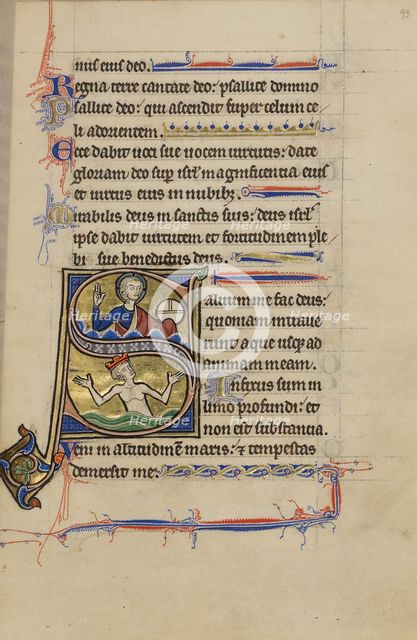 93
nus eius deo.
Regna terre cantate deo: psallite domino
Psallite deo: qui ascendit super celum ce
li ad orientem.
Ecce dabit uoci sue uocem uirtutis: date
gloriam deo sup isrl magnificentia eius
et uirtus eius in nubibz.
Mirabilis deus in sanctis suis: deus isrl
ipse dabit uirtutem et fortitudinem ple
bi sue benedictus deus.
Saluum me fac deus:
quoniam intraue
runt aque usqz ad
animam meam.
Infixus sum in
limo profundi: et
non est substantia.
Veni in altitudinē maris: et tempestas
demersit me.
Heritage
Images